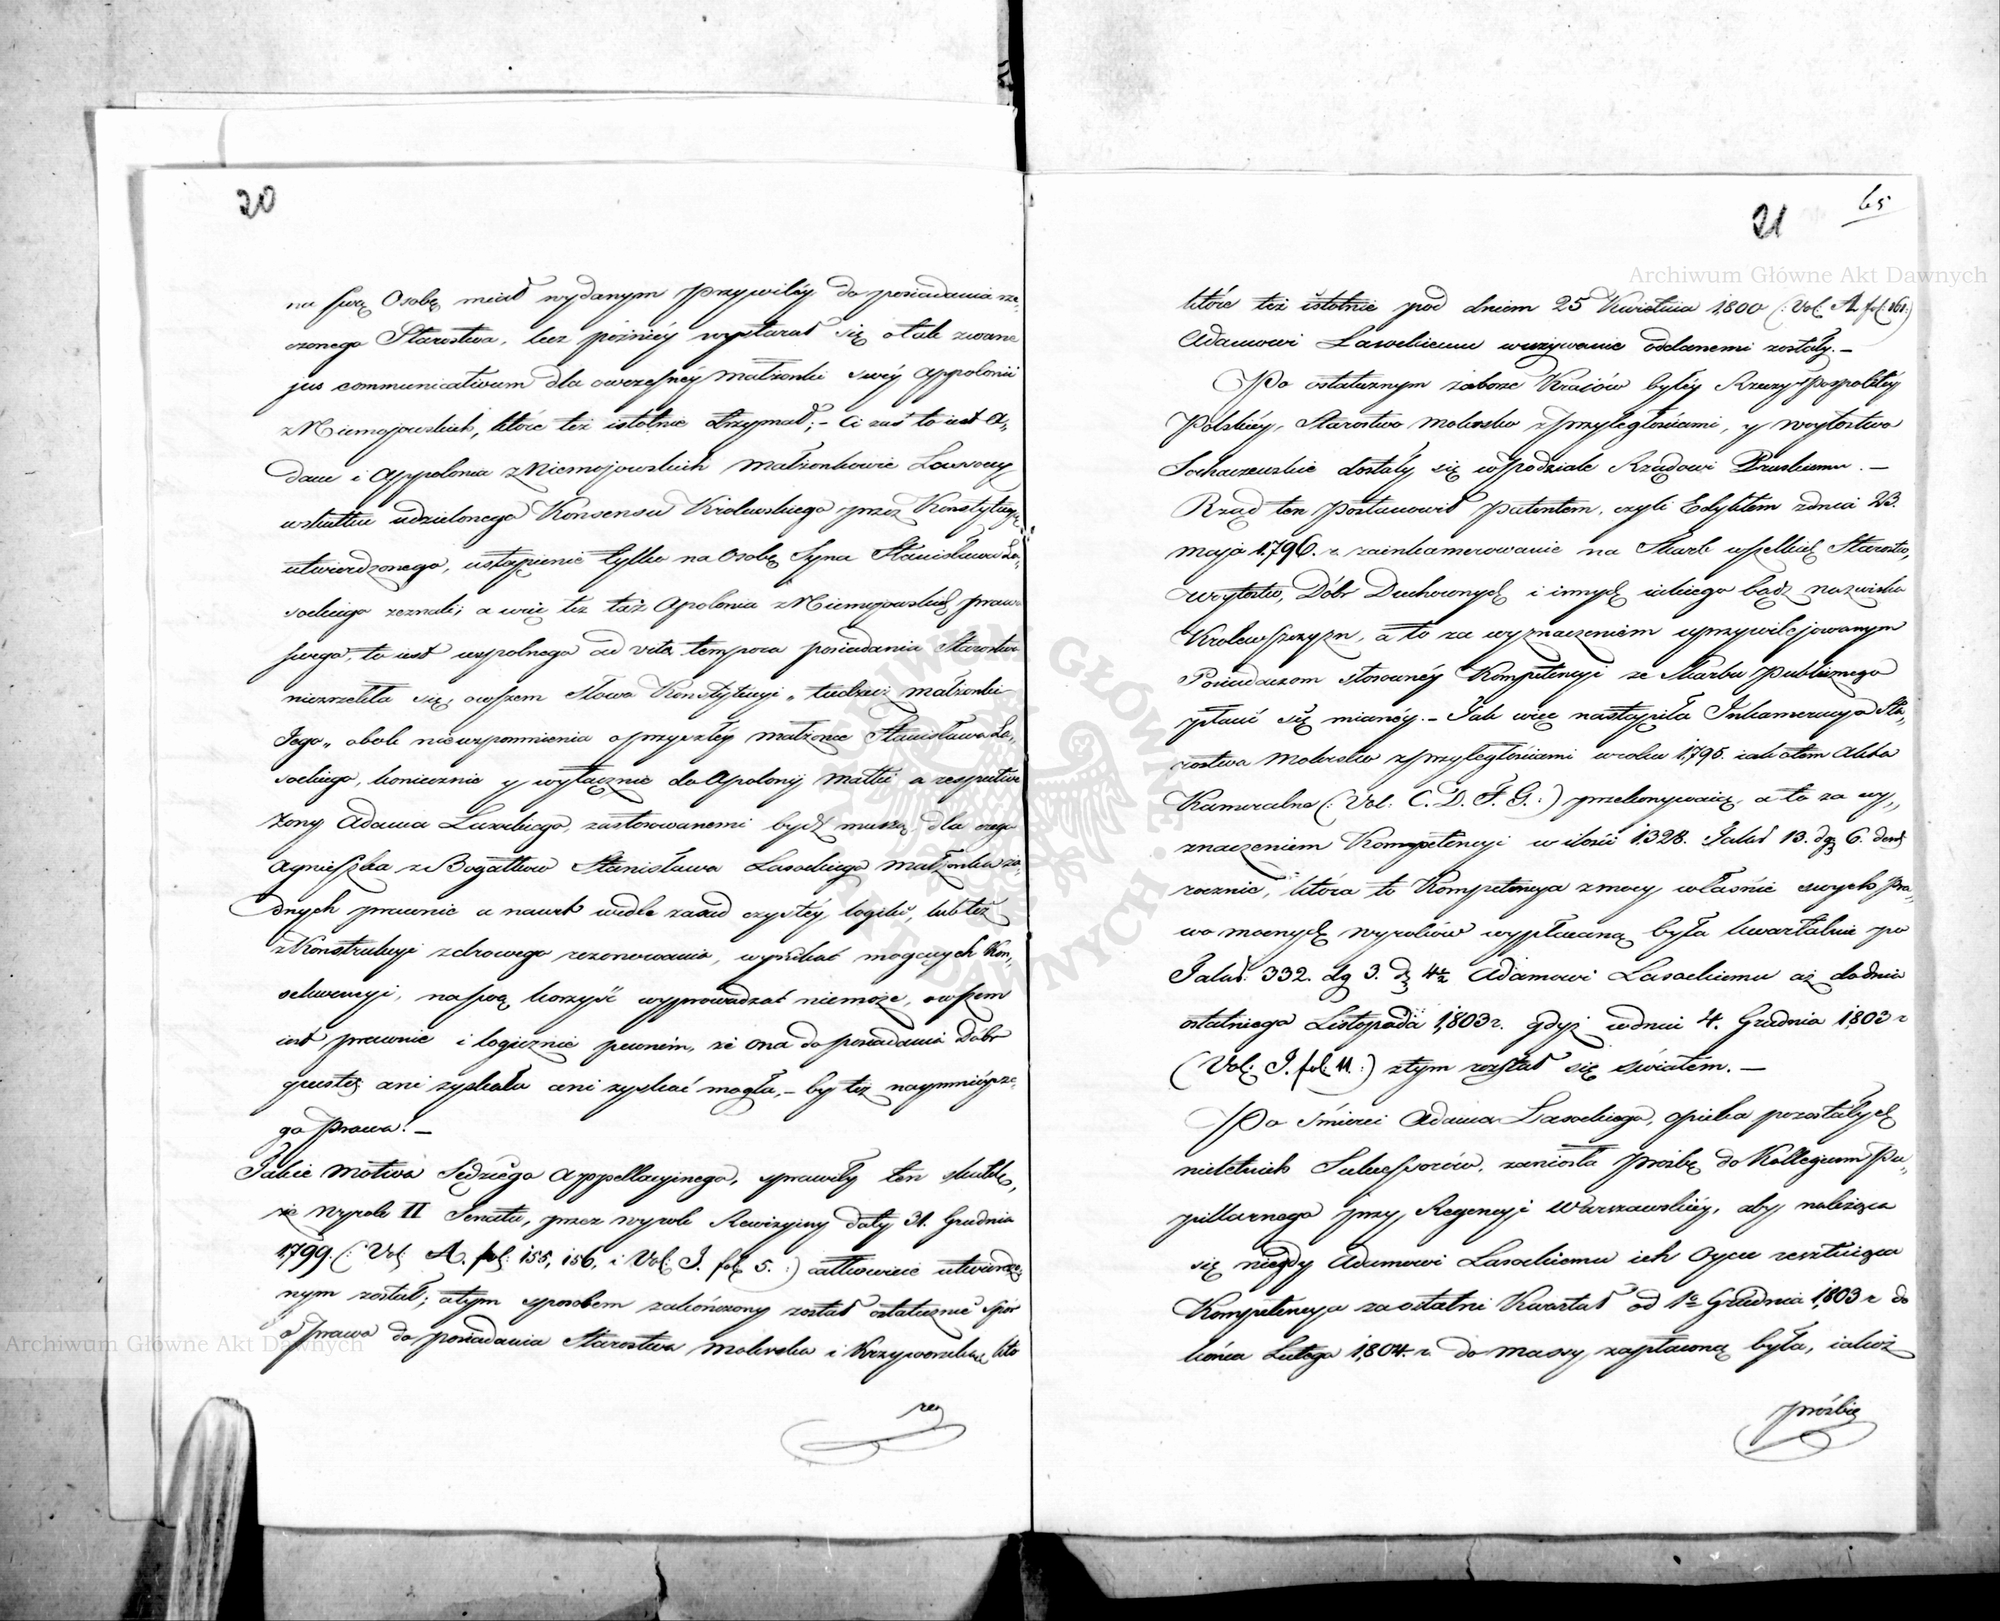 20
na swą Osobę miał wydanym Przywiléy do posiadania rze,
czonego Starostwa, lecz pózniéy wystarał się o tak zwane
jus communicativum dla owczesnéy Małżonki swéy Appolonii
z Niemojowskich, które też istotnie otrzymał; – Ci zaś to iest A,
dam i Appolonia z Niemojowskich Małżonkowie Lasoccy
wskutku udzielonego Konsensu Królewskiego przez Konstytucyę
utwierdzonego, ustąpienie tylko na Osobę Syna Stanisława La,
sockiego zeznali; a więc też taż Apolonia z Niemojowskich prawa
swego, to iest wspolnego ad vitæ tempora posiadania Starostwa
niezrzekła się, owszem słowa Konstytucyi „tudzież małżonki
Jego„ obok niewspomnienia o przyszłéy małżonce Stanisława La,
sockiego, koniecznie y wyłącznie do Apolonij matki a respective
Żony Adama Lasockiego, zastosowanemi bydź muszą, dla czego
Agnieszka z Bogatków Stanisława Lasockiego Małżonka ża,
dnych prawnie a nawet wedle zasad czystéy logiki, lub też
z Konstrukcyi zdrowego rezonowania, wynikać mogących Kon,
sekwencyi, na swą korzyść wyprowadzać niemoże, owszem
iest prawnie i logicznie pewném, że ona do posiadania Dóbr
quest: ani zyskała ani zyskać mogła, – by też naymniéysze,
go Prawa! –
Takie motiva Sędziego Appellacyinego, sprawiły ten skutek,
że Wyrok II Senatu, przez wyrok Rewizyiny daty 31. Grudnia
1799. (: Vol: A. fol: 155, 156, i Vol: I. fol: 5. :) całkowicie utwierdzo,
nym został; a tym sposobem zakończony został ostatecznie spór
o prawo do posiadania Starostwa Mokrska i Krzyworzeka, któ
re
65
21
Archiwum Główne Akt Dawnych
które też istotnie pod dniem 25 Kwietnia 1800 (: Vol: A fol: 161:)
Adamowi Lasockiemu w używanie oddanemi zostały. –
Po ostatecznym zaborze Kraiów byłéy Rzeczy-Pospolitéy
Polskiéy, Starostwo Mokrsko z przyległościami, y woytostwo
Sochaczewskie dostały się w podziale Rządowi Pruskiemu. –
Rząd ten postanowił Patentem, czyli Edyktem z dnia 28.
Maja 1796. r. zainkamerowanie na Skarb wszelkich Starostw,
Woytostw, Dóbr Duchownych i innych iakiego bądź nazwiska
Krolewszczyzn, a to za wyznaczeniem uprzywilejowanym
Posiadaczom stosownéy Kompetencyi ze Skarbu Publicznego
płacić się mianéy. – Jak więc nastąpiła Inkameracya Sta,
rostwa Mokrsko z przyległościami w roku 1796. iak o tém Akta
Kameralne (: Vol: C. D. F. G. :) przekonywaią, a to za wy,,
znaczeniem Kompetencyi w ilości 1328. Talar 13. dg 6. den
rocznie, która to Kompetencya z mocy właśnie owych Pra,
wo mocnych wyroków wypłacaną była kwartalnie po
Talar: 332. dg 3. d 4½ Adamowi Lasockiemu aż do dnia
ostatniego Listopada 1803 r. gdyż w dniu 4. Grudnia 1803 r
(Vol: I. fol: 11. :) z tym rozstał się światem. –
Po śmierci Adama Lasockiego, opieka pozostałych
nieletnich Sukcessorów, zaniosła prozbę do Kollegium Pu,,
pillarnego przy Regencyi Warszawskiéy, aby należąca
się niegdy Adamowi Lasockiemu ich Oycu resztuiąca
Kompetencya za ostatni Kwartał od 1go Grudnia 1803 r do
końca Lutego 1804. r. do massy zapłaconą była, iakoż
prośbie
Archiwum Główne Akt Dawnych
ARCHIWUM GŁÓWNE AKT DAWNYCH